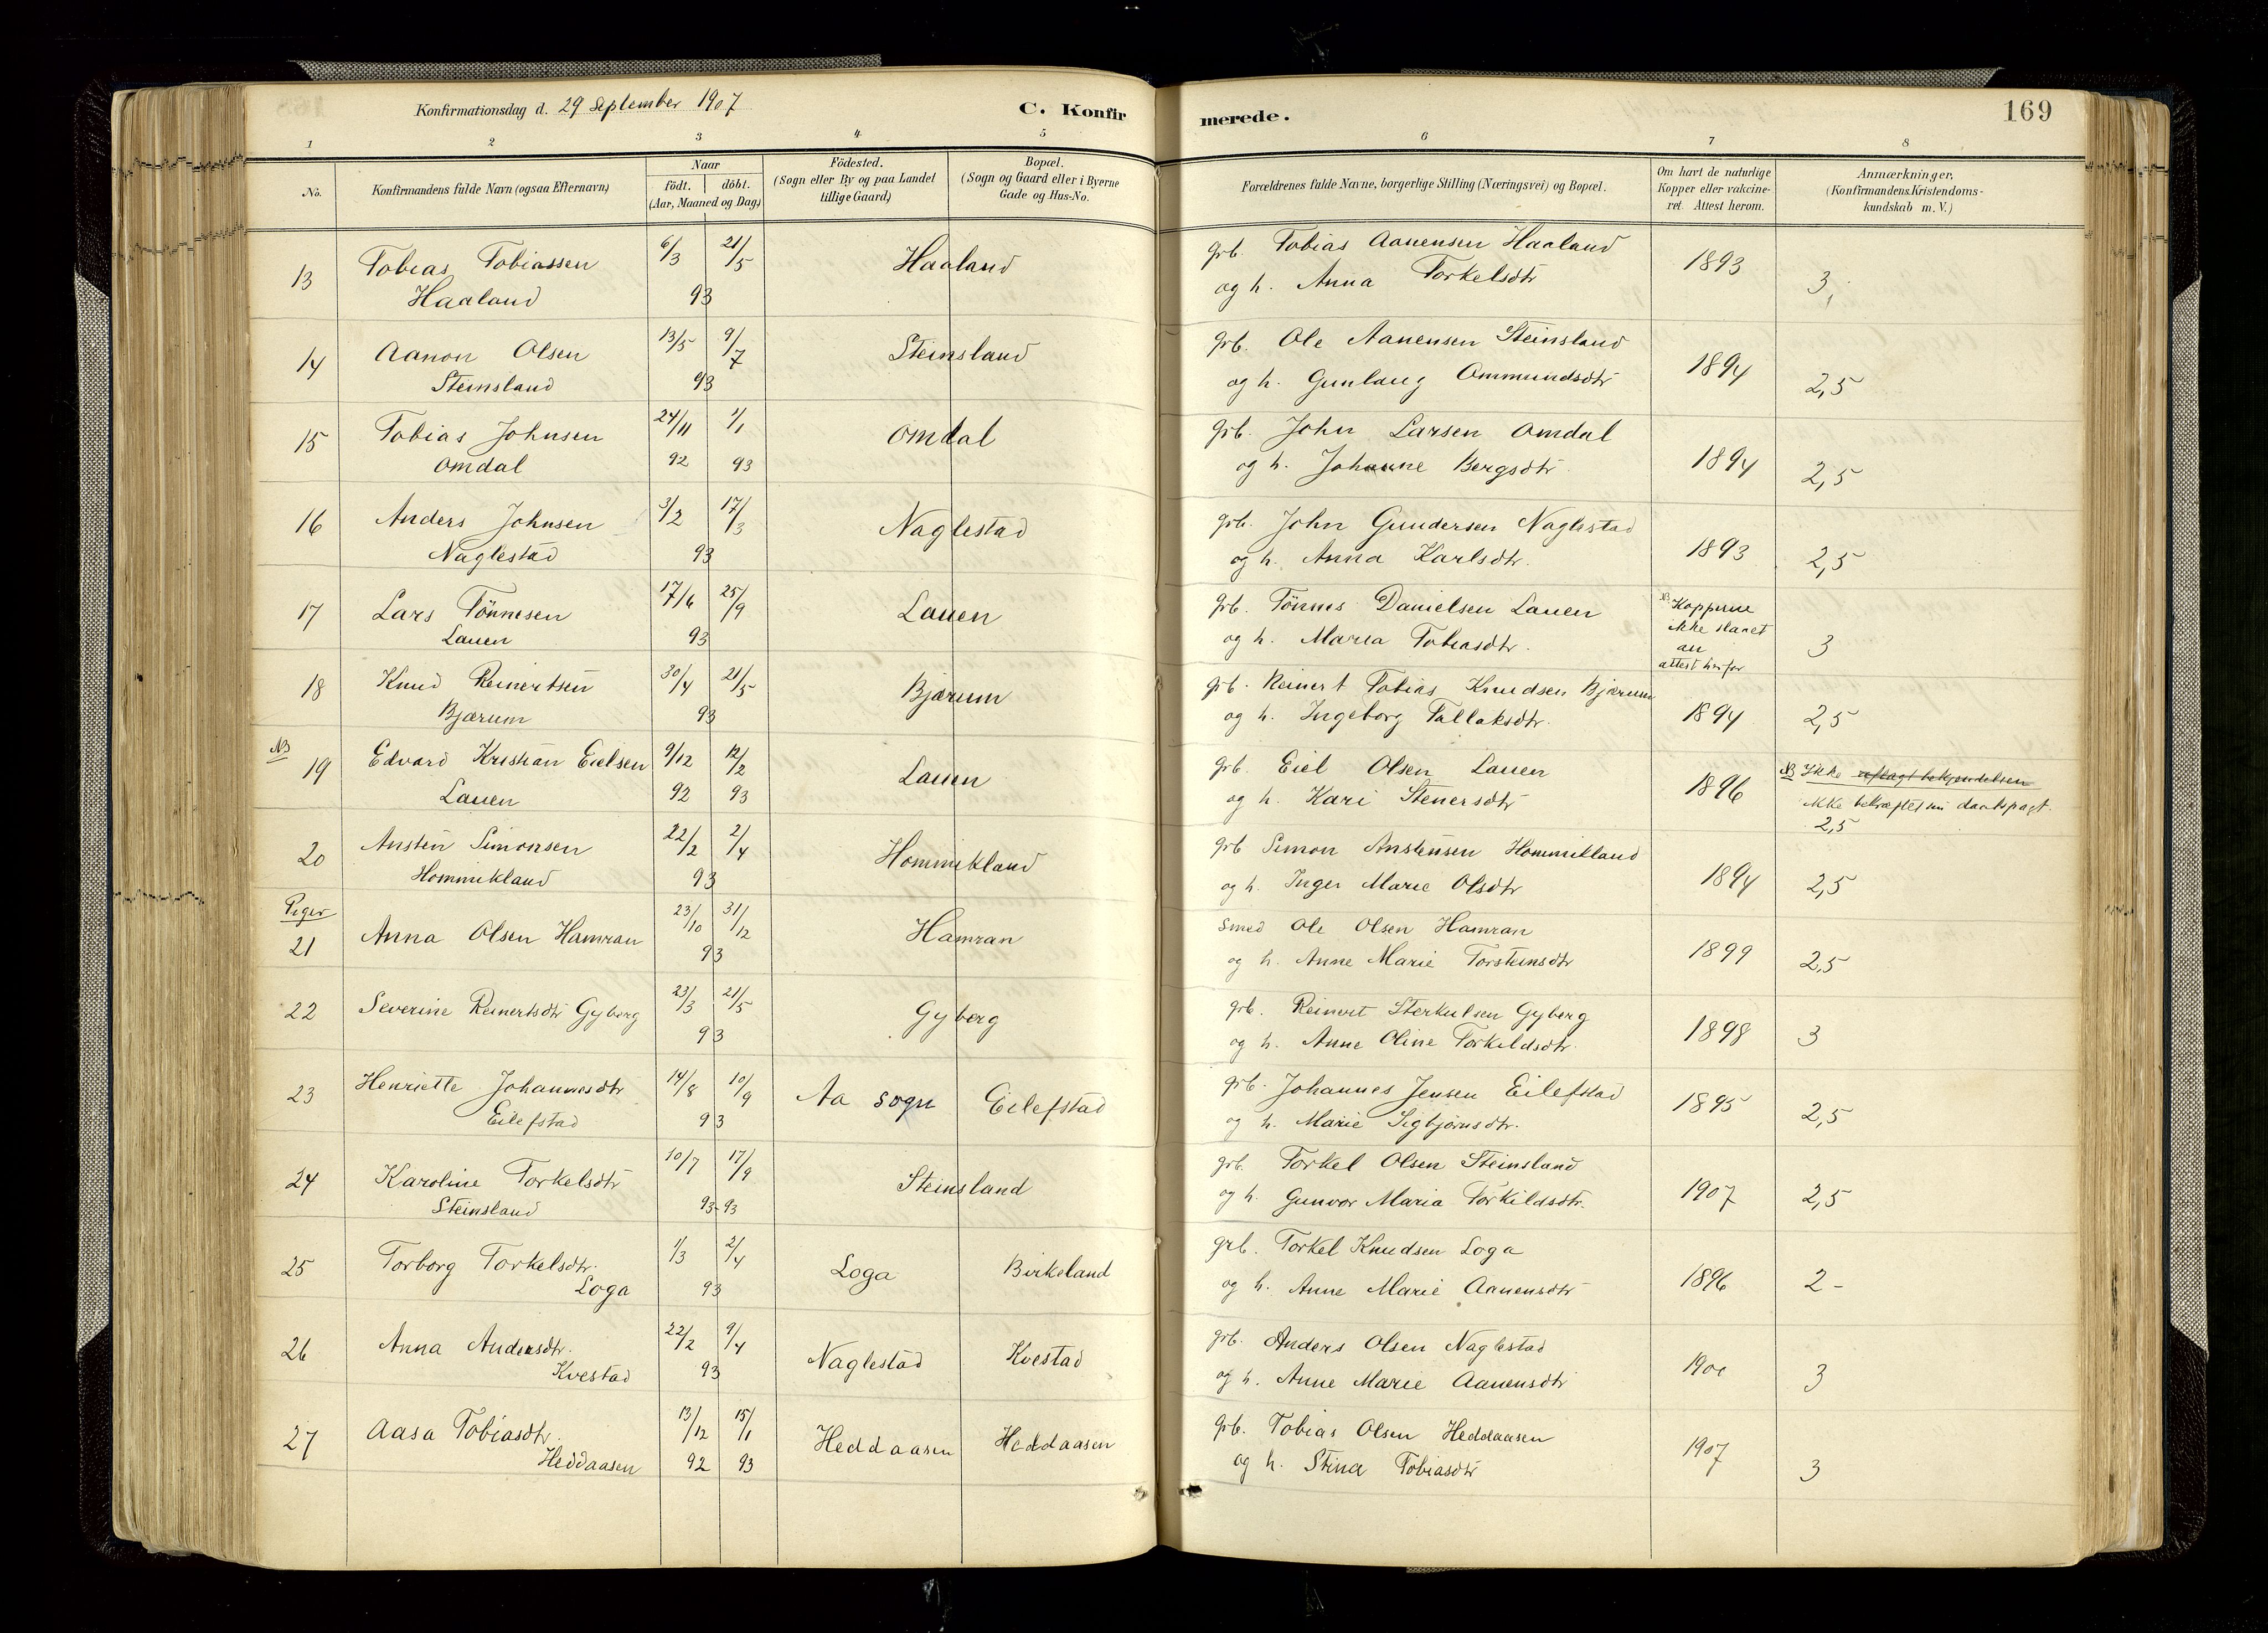 Konfirmationsdag d. 29 September 1907
C. Konfirmerede.
169
1 2 3 4 5 6 7 8
No.
Konfirmandens fulde Navn (ogsaa Efternavn)
Naar
födt. döbt.
(Aar, Maaned og Dag)
Födested.
(Sogn eller By og paa Landet
tillige Gaard)
Bopæl.
(Sogn og Gaard eller i Byerne
Gade og Hus-No.
Forældrenes fulde Navne, borgerlige Stilling (Næringsvei) og Bopæl.
Om havt de naturlige
Kopper eller vakcine-
ret. Attest herom.
Anmærkninger.
(Konfirmandens Kristendoms-
kundskab m. V.)
13 Tobias Tobiassen 6/3 21/5 Haaland grb. Tobias Aanensen Haaland 1893 3,
Haaland 93 og h. Anna Torkelsdtr
14 Aanon Olsen 13/5 9/7 Steinsland grb. Ole Aanensen Steinsland 1894 2,5
Steinsland 93 og h. Gunlaug Ommundsdtr
15 Tobias Johnsen 24/11 1/1 Omdal grb. John Larsen Omdal 1894 2,5
Omdal 92 93 og h. Johanne Bergsdtr.
16 Anders Johnsen 3/2 17/3 Naglestad grb. John Gundersen Naglestad 1893 2,5
Naglestad 93 og h. Anna Karlsdtr.
17 Lars Tönnesen 17/6 25/9 Lauen grb. Tönnes Danielsen Lauen Kopperne 3
ikke slaaet
an
attest herfor
Lauen 93 og h. Maria Tobiasdtr.
18 Knud Reinertsen 30/4 21/5 Bjærum grb. Reinert Tobias Knudsen Bjærum 1894 2,5
Bjærum 93 og h. Ingeborg Tallaksdtr.
NB
19 Edvard Kristian Eielsen 9/12 12/2 Lauen grb. Eiel Olsen Lauen 1896 NB Ikke aflagt bekjendelsen
Lauen 92 93 og h. Kari Stenersdtr ikke bekræftet sin daabspagt.
2,5
20 Ansten Simonsen 22/2 2/4 Hommikland grb Simon Anstensen Hommikland 1894 2,5
Hommikland 93 og h. Inger Marie Olsdtr
Piger
21 Anna Olsen Hamran 23/10 31/12 Hamran Smed Ole Olsen Hamran 1899 2,5
93 og h. Anne Marie Torsteinsdtr
22 Severine Reinertsdtr Gyberg 23/3 21/5 Gyberg grb. Reinert Sterkulsen Gyberg 1898 3
93 og h. Anne Oline Torkildsdtr.
23 Henriette Johannesdtr 14/8 10/9 Aa sogn Eilefstad grb. Johannes Jensen Eilefstad 1895 2,5
Eilefstad 93 og h. Marie Sigbjørnsdtr.
24 Karoline Torkelsdtr 10/7 17/9 Steinsland grb. Torkel Olsen Steinsland 1907 2,5
Steinsland 93-93 og h. Gunvor Maria Torkildsdtr.
25 Torborg Torkelsdtr. 1/3 2/4 Loga Birkeland grb. Torkel Knudsen Loga 1896 2-
Loga 93 og h. Anne Marie Aanensdtr
26 Anna Andersdtr. 22/2 9/4 Naglestad Kvestad grb. Anders Olsen Naglestad 3
Kvestad 93 og h. Anne Marie Aanensdtr
27 Aasa Tobiasdtr. 13/12 15/1 Heddaasen Heddaasen grb. Tobias Olsen Heddaasen 1907 3
Heddaasen 92 93 og h. Stina Tobiasdtr